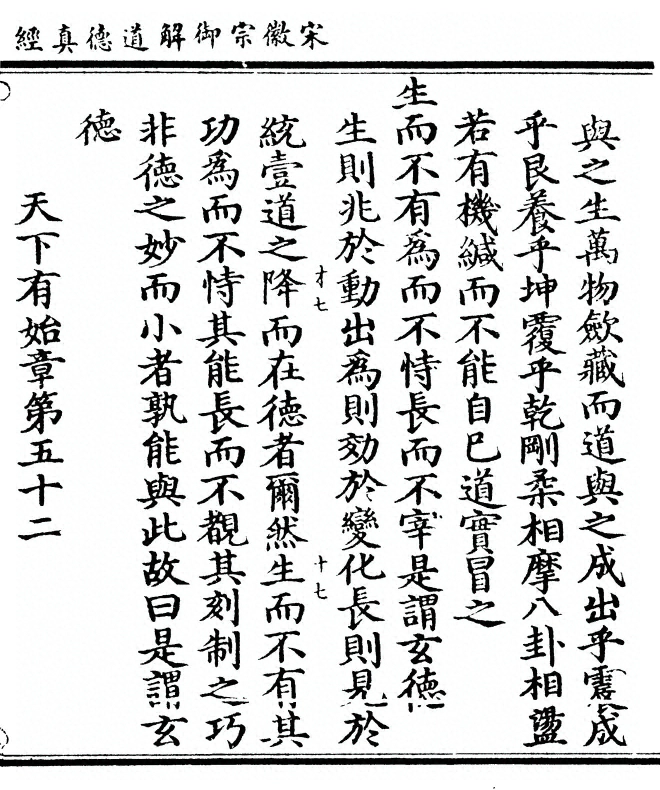 宋徽宗御解道德真經
與之生萬物歛藏而道與之成出乎震成
乎艮養乎坤覆乎乾剛柔相摩八卦相盪
若有機緘而不能自已道實冒之
生而不有為而不恃長而不宰是謂玄德
生則兆於動出為則効於變化長則見於
統壹道之降而在德者爾然生而不有其
才七
十七
功為而不恃其能長而不覩其刻制之巧
非德之妙而小者孰能與此故曰是謂玄
德
天下有始章第五十二